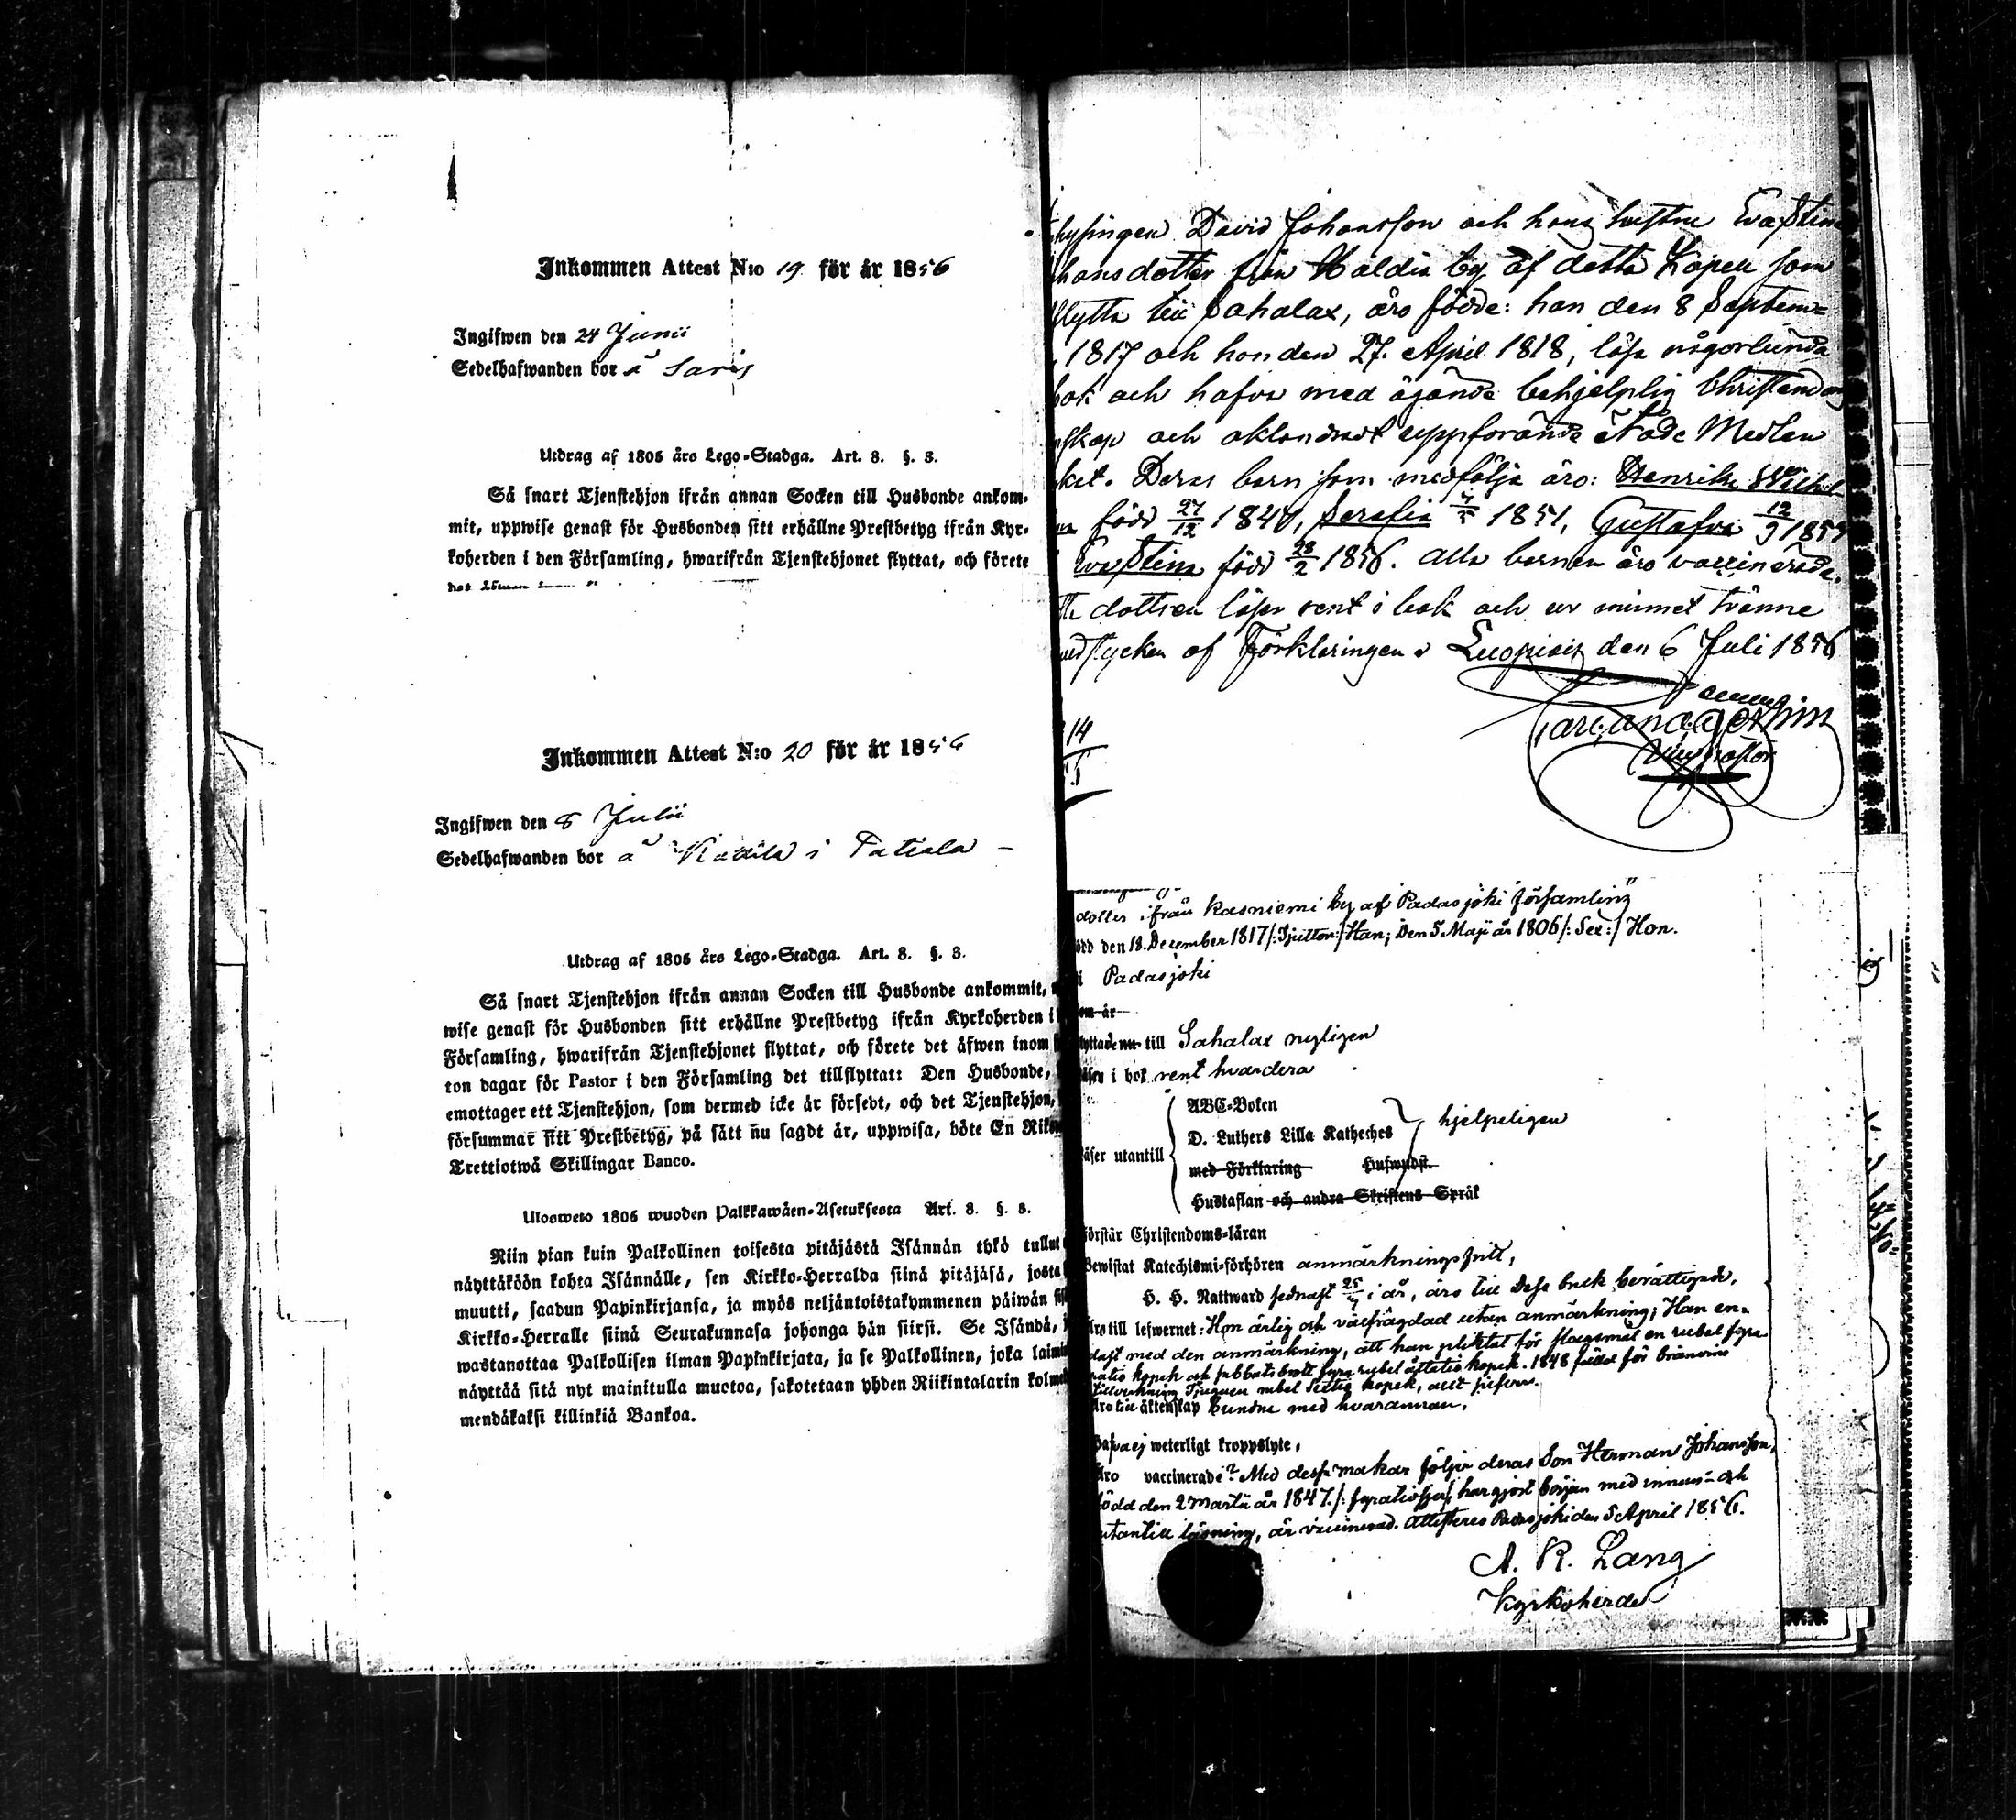 Inkommen Attest N:o 19 för år 1856
Ingifwen den 24 Junii
Sedelhafwanden bor å Saris
Utdrag af 1805 års Lego-Stadga. Art. 8. §. 3.
Så snart Tjenstehjon ifrån annan Socken till Husbonde ankom-
mit, uppwise genast för Husbonden sitt erhållne Prestbetyg ifrån Kyr-
koherden i den Församling, hwarifrån Tjenstehjonet flyttat, och förete
Inkommen Attest N:o 20 för år 1856
Ingifwen den 8 Julii
Sedelhafwanden bor å i
Utdrag af 1805 års Lego-Stadga. Art. 8. §. 3.
Så snart Tjenstehjon ifrån annan Socken till Husbonde ankommit,
wise genast för Husbonden sitt erhållne Prestbetyg ifrån Kyrkoherden i
Församling, hwarifrån Tjenstehjonet flyttat, och förete det äfwen inom
ton dagar för Pastor i den Församling det tillflyttat: Den Husbonde,
emottager ett Tjenstehjon, som dermed icke är försedt, och det Tjenstehjon,
försummar sitt Prestbetyg, på sätt nu sagdt är, uppwisa, böte En Riks
Trettiotwå Skillingar Banco.
Ulosweto 1805 wuoden Palkkawäen-Asetuksesta Art. 8. §. 3.
Niin pian kuin Palkollinen toisesta pitäjästä Isännän tykö tullut
näyttäköön kohta Isännälle, sen Kirkko-Herralda siinä pitäjäsä, josta
muutti, saadun Papinkirjansa, ja myös neljäntoistakymmenen päiwän
Kirkko-Herralle siinä Seurakunnasa johonga hän siirsi. Se Isändä,
wastanottaa Palkollisen ilman Papinkirjata, ja se Palkollinen, joka laimin
näyttää sitä nyt mainitulla muotoa, sakotetaan yhden Riikintalarin kolme
mendäkaksi killinkiä Bankoa.
hysingen David Johansson och hans hustru Eva Stina
hansdotter från Haldia by af detta Kapell som
flytta till Sahalax, äro födde: han den 8 Septem=
1817 och hon den 27. April 1818, läsa någorlunda
bok och hafva med ägande behjelplig Christendoms
skap och oklandradt uppförande Nåde Medlen
kat. Deras barn som medfölja äro: Henrika Wilhel
född 27/12 1840, Serafia 1851, Gustafva 12/9 185
Eva Stina född 28/2 1856. Alla barnen äro vaccinerade.
dottren läser rent i bok och ur minnet tvänne
stycken af Förklaringen. Luopiois den 6 Juli 1856
14
dotter ifrån Kasniemi By af Padasjoki församling
född den 18. December 1817/: Sjutton:/ Han; Den 5 Maji år 1806/: Sex:/ Hon.
i Padasjoki
om är
flyttade nu till Sahalax nyligen
läsa i bok rent hvardera
läser utantill
ABC-Boken
D. Luthers Lilla Katheches
hjelpeligen
med Förklaring Hufwudst.
Hustaflan och andra Skriftens Språk
förstår Christendoms-läran
Bewistat Katechismi-förhören anmärkningsfritt,
H. H. Nattward sednast 25/ i år, äro till dess bruk berättigade,
Äro till lefwernet: Hon ärlig och välfrägdad utan anmärkning; Han en=
dast med den anmärkning, att han pliktat för slagsmål en rubel fyra
ratio kopek och sabbatsbrott fyra rubel åttatio kopek. 1848 fälld för bränvins
tillverkning Tjugu rubel Sextio kopek, allt silfver.
Äro till äktenskap bundne med hvarannan,
Hafva ej weterligt kroppslyte,
Äro vaccinerade. Med dessa makar följer deras Son Herman Johansson,
född den 2 Martii år 1847./: fyratiosju:/ har gjort början med innan- och
utantill läsning, är vaccinerad. Attesteras Padasjoki den 5 April 1856.
A. R. Lang
Kyrkoherde